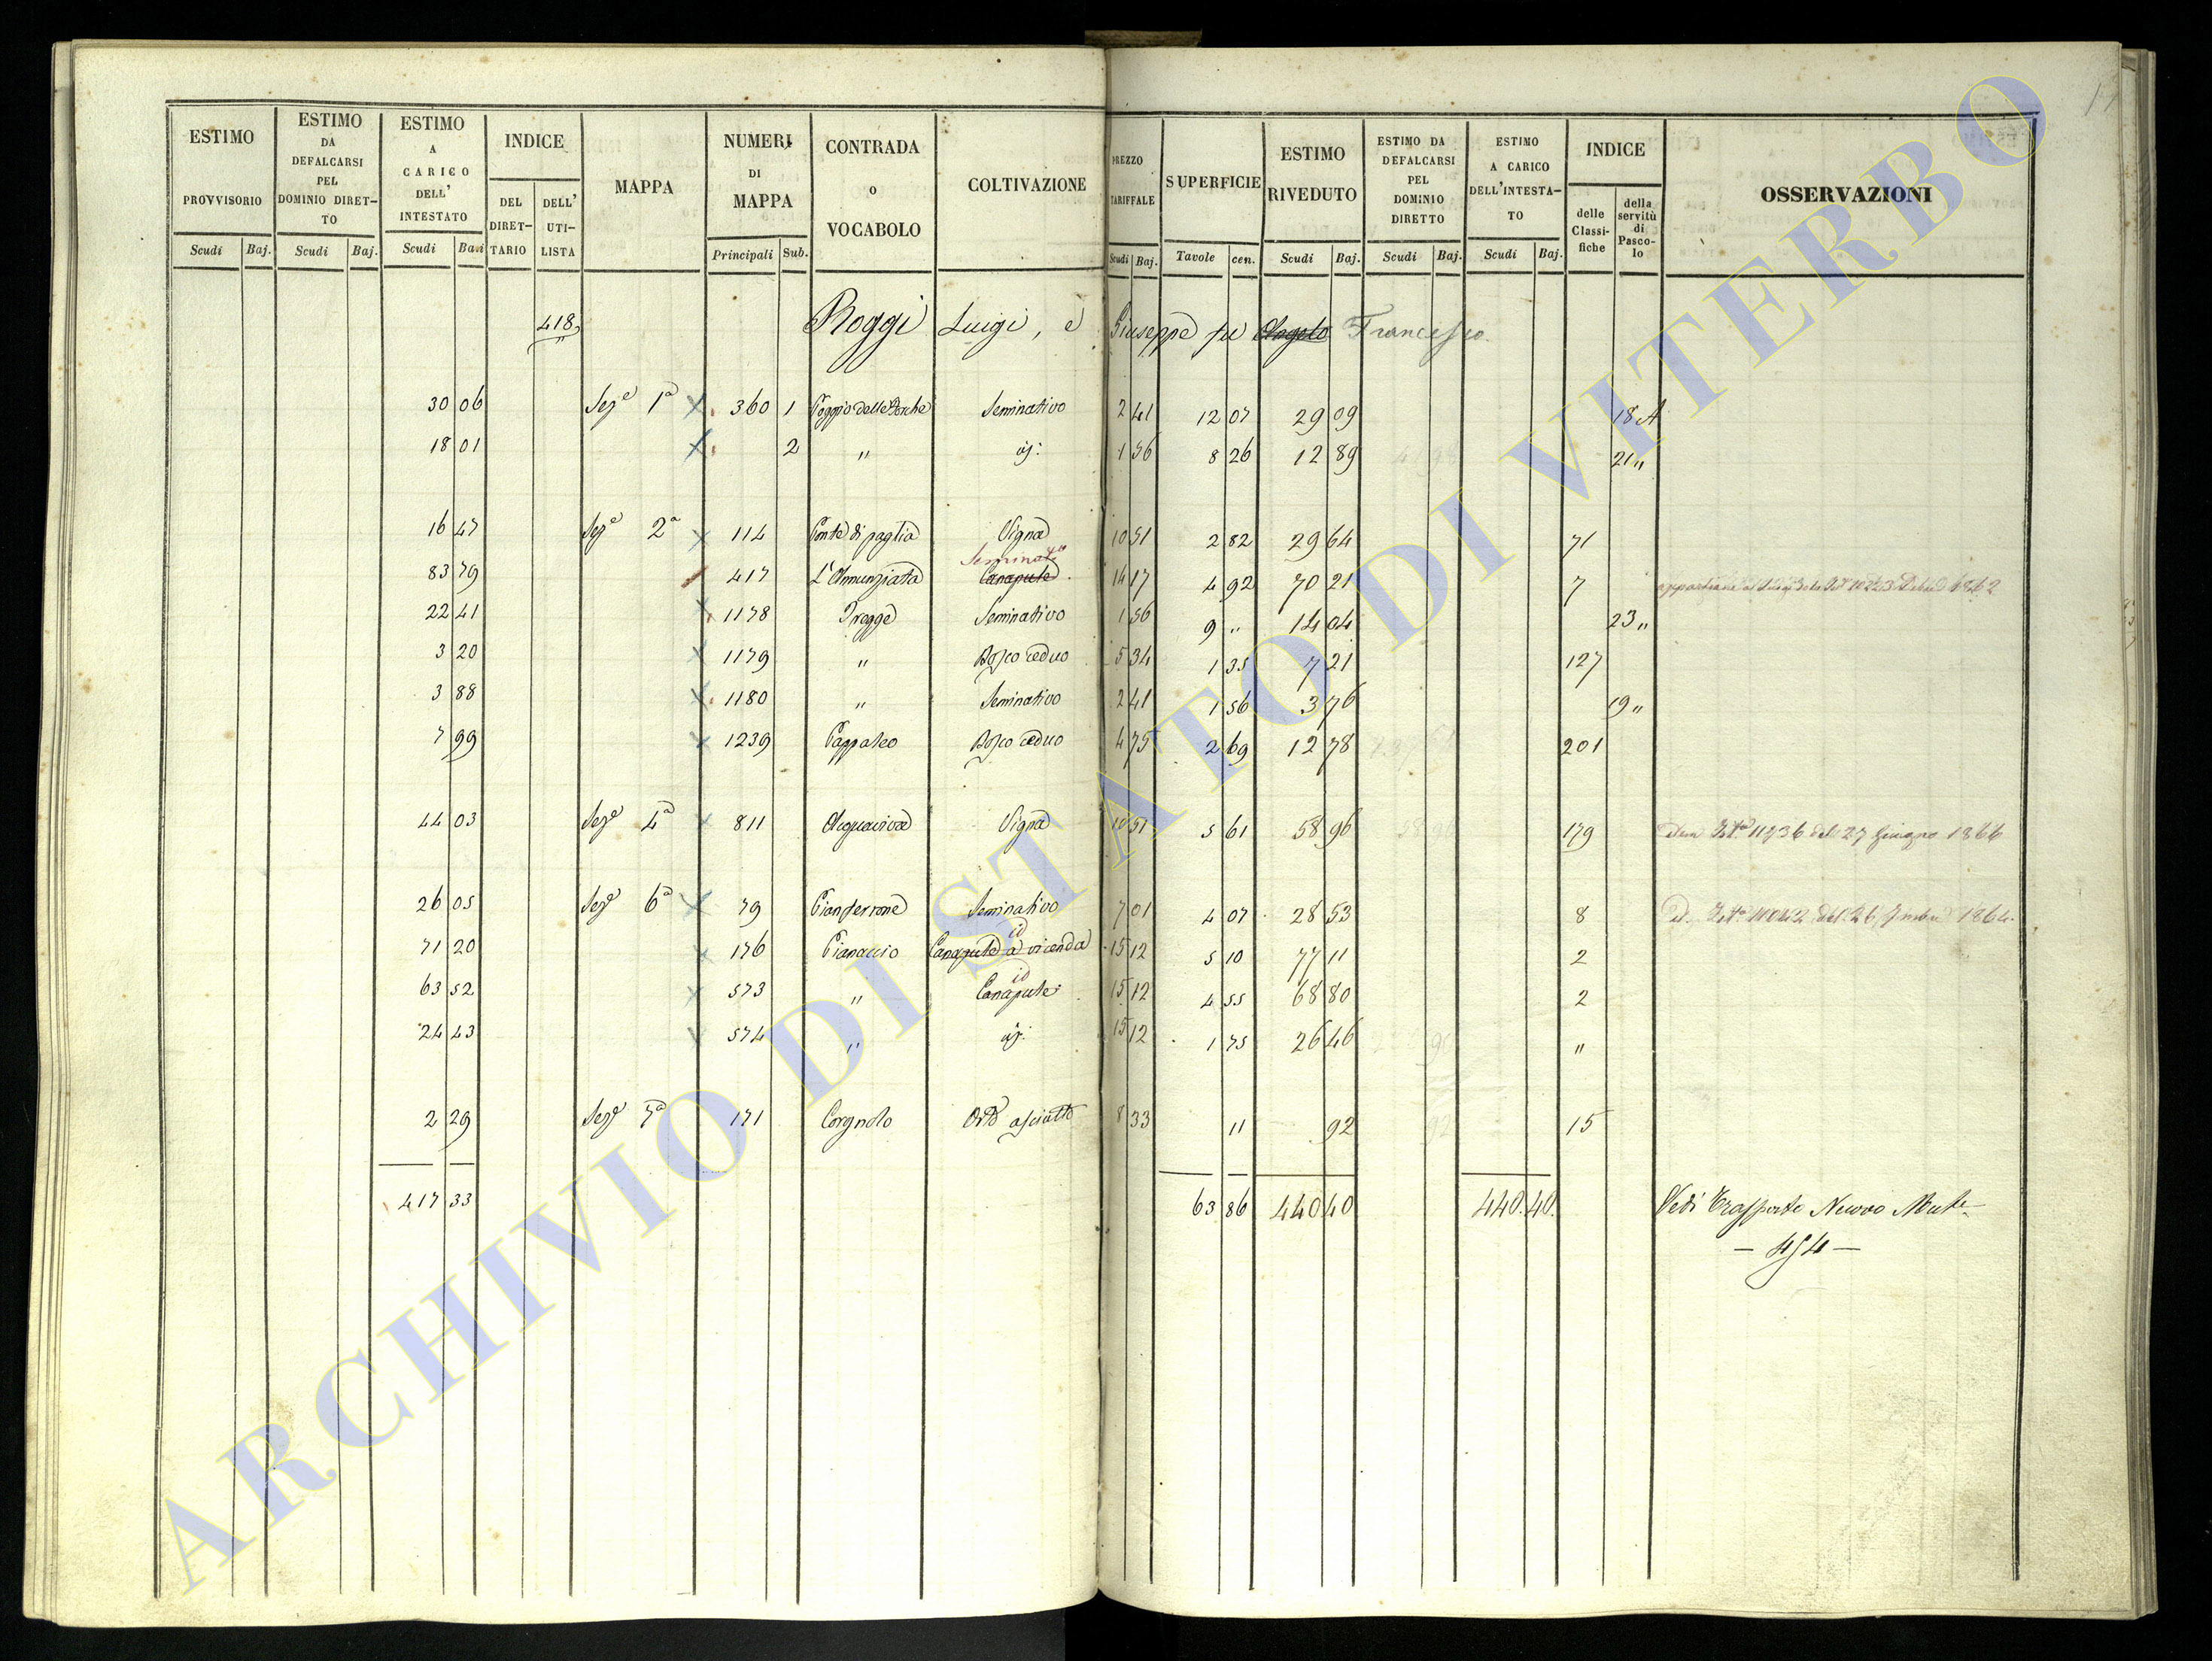 ESTIMO PROVVISORIO Scudi Baj.
ESTIMO DA DEFALCARSI PEL DOMINIO DIRET-TO Scudi Baj.
ESTIMO A CARICO DELL' INTESTATO Scudi Bai
INDICE DEL DIRET-TARIO DELL' UTI-LISTA
MAPPA
NUMERI DI MAPPA Principali Sub.
CONTRADA O VOCABOLO
COLTIVAZIONE
PREZZO TARIFFALE Scudi Baj.
SUPERFICIE Tavole cen.
ESTIMO RIVEDUTO Scudi Baj.
ESTIMO DA DEFALCARSI PEL DOMINIO DIRETTO Scudi Baj.
ESTIMO A CARICO DELL'INTESTA-TO Scudi Baj.
INDICE delle Classi-fiche della servitù di Pasco-lo
OSSERVAZIONI
418 Roggi Luigi, e Giuseppe fu Angelo Francesco
30 06 Sez.e 1a 360 1 Poggio delle Forche Seminativo 2 41 12 07 29 09 18 A
18 01 2 " id: 1 56 8 26 12 89 21 "
16 47 Sez.e 2a 114 Ponte di paglia Vigna 10 51 2 82 29 64 71
Seminato
83 79 417 L'Annunziata Canapule 14 17 4 92 70 21 7 1862
22 41 1178 Tregge Seminativo 1 56 9 " 14 04 23 "
3 20 1179 " Bosco ceduo 5 34 1 35 7 21 127
3 88 1180 " Seminativo 2 41 1 56 3 76 19 "
7 99 1239 Pappaleo Bosco ceduo 4 75 2 69 12 78 201
44 03 Sez.e 4a 811 Acquaviva Vigna 10 51 5 61 58 96 179 11736 del 27 Giugno 1866
26 05 Sez.e 6a 79 Pianferrone Seminativo 7 01 4 07 28 53 8 1864
id
71 20 176 Pianaccio Canapule a vicenda 15 12 5 10 77 11 2
id
63 52 573 " Canapule 15 12 4 55 68 80 2
24 43 574 " id: 15 12 1 75 26 46 "
2 29 Sez.e 7a 171 Corgnolo Orto asciutto 8 33 11 92 15
417 33 63 86 440 40 440. 40. Vedi Trasporto Nuovo
– 454 –
ARCHIVIO DI STATO DI VITERBO